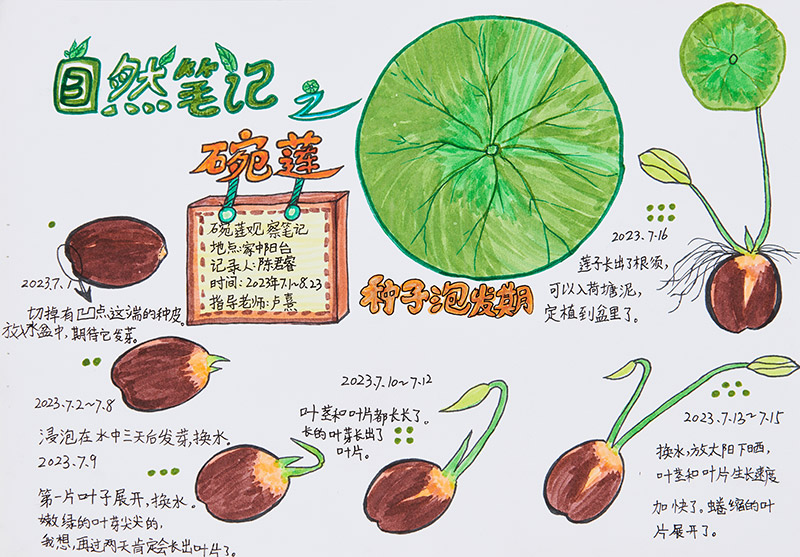 自然笔记之
碗莲
碗莲观察笔记
地点:家中阳台
记录人:陈君睿
时间:2023年7.1~8.23
指导老师:卢熹
种子泡发期
2023.7.1
切掉有凹点这端的种皮。
放入水盆中,期待它发芽。
2023.7.2~7.8
浸泡在水中三天后发芽,换水。
2023.7.9
第一片叶子展开,换水。
嫩绿的叶芽尖尖的,
我想,再过两天肯定会长出叶片了。
2023.7.10~7.12
叶茎和叶片都长长了。
长的叶芽长出了
叶片。
2023.7.13~7.15
换水,放太阳下晒,
叶茎和叶片生长速度
加快了。蜷缩的叶
片展开了。
2023.7.16
莲子长出了根须,
可以入荷塘泥,
定植到盆里了。